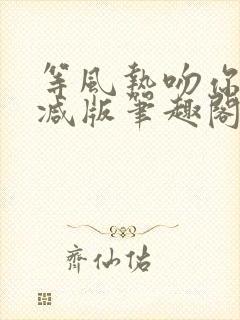 等風熱吻你
減版筆趣閣
齊仙佑